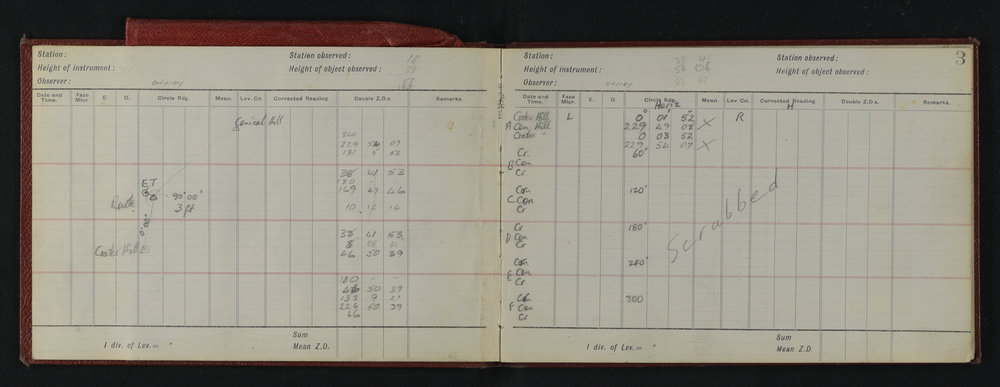 Station:
Station observed:
Height of instrument:
Height of object observed:
Observer:
Date and Time.
Face Micr.
E.
O.
Circle Rdg.
Mean.
Lev. Cn.
Corrected Reading.
Double Z.D.s.
Remarks
Conical Hill
360
131
38 41 53
180 - -
169 47 46
10 12 14
E T
90° 00'
3 ft
Route
0° 00'
Crater Hill
38 41 53
8
46 50 39
180 - -
46 50 39
133 9 21
226 50 39
66
Sum
1 div. of Lev. = "
Mean Z.D.
3
Station:
Station observed:
Height of instrument:
Height of object observed:
Observer:
Date and Time.
Face Micr.
E.
O.
Circle Rdg.
Mean.
Lev. Cn.
Corrected Reading.
Double Z.D.s.
Remarks
Horiz
H
Crater Hill L 0° 01' 52" R
A Con Hill 229 49 08 X
Crater - 0 03 52
229 54 07 X
Cr 60°
B Con
Cr
Con 120°
C Con
Cr
Cr 180°
D Con
Cr
Scrubbed
Con 240°
E Con
Cr
Cr 300
F Con
Cr
Sum
1 div. of Lev. = "
Mean Z.D